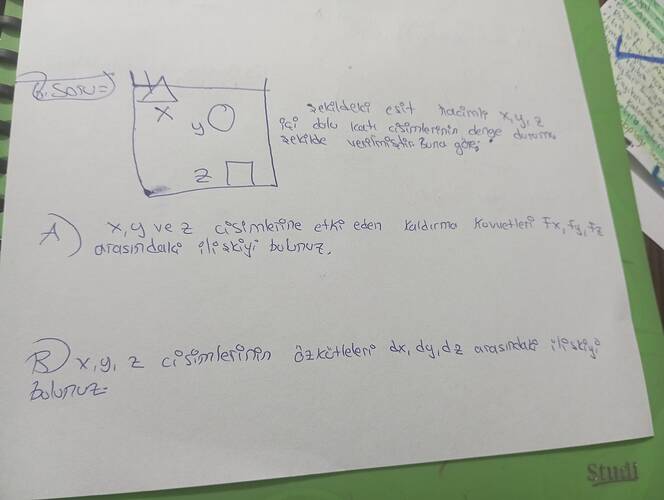 6. Soru=)
X
y
Z
Şekildeki eşit hacimli x, y, z
içi dolu katı cisimlerinin denge durumu
şekilde verilmiştir. Buna göre;
A) x, y ve z cisimlerine etki eden kaldırma kuvvetleri Fx, Fy, Fz
arasındaki ilişkiyi bulunuz.
B) x, y, z cisimlerinin özkütleleri dx, dy, dz arasındaki ilişkiyi
bulunuz=
Studi